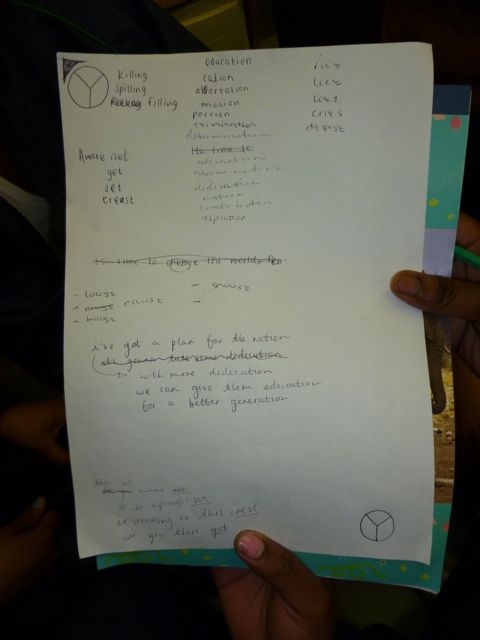 Killing
Spilling
filling
education
cation
abortation
mission
portion
termination
determination
Its time to
abomination
dedication
nation
contribution
inspiration
rice
lice
lies
cries
depise
Aware net
yet
set
crest
its time to change the world
- loose
- cruise
- boose
- goose
-
i've got a plan for the nation
its gonna take some dedication
with more dedication
we can give them education
for a better generation
this is
aware
it is a
standing on this crest
are you there yet